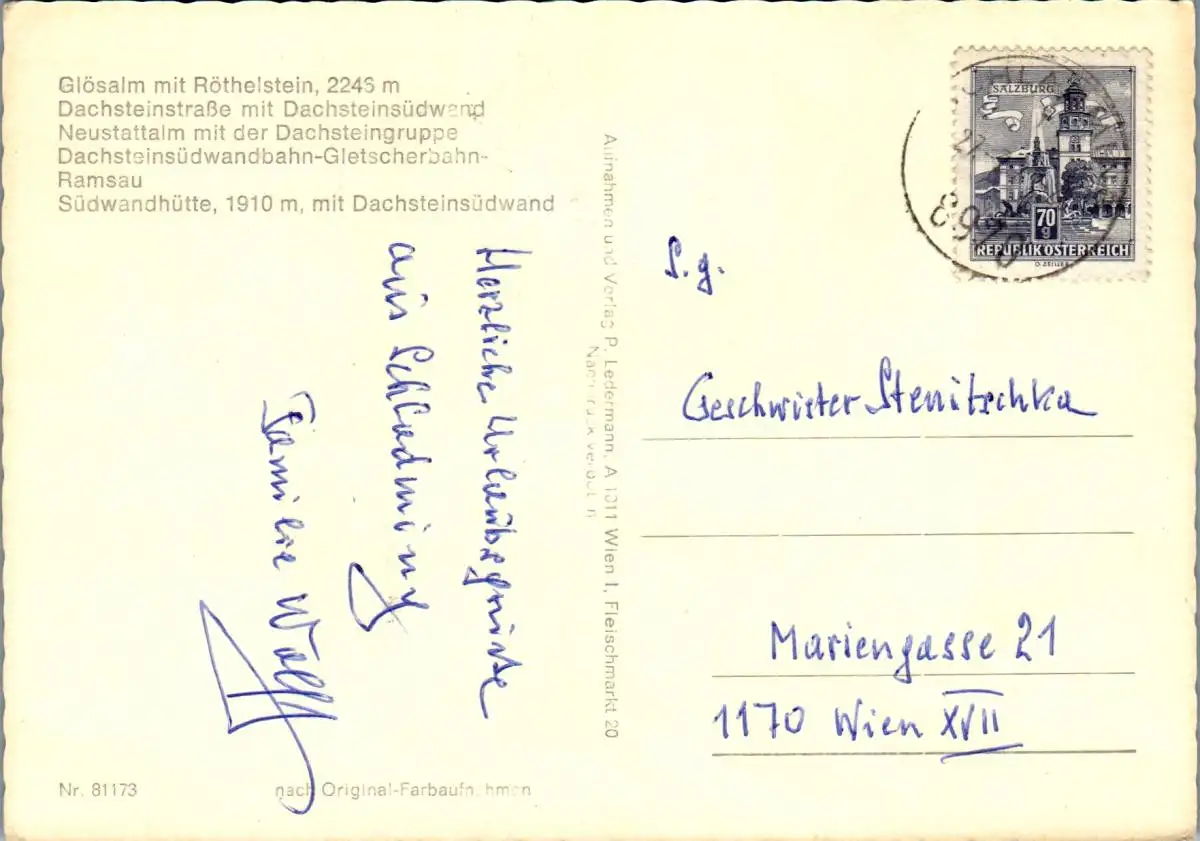 Glösalm mit Röthelstein, 2246 m
Dachsteinstraße mit Dachsteinsüdwand
Neustattalm mit der Dachsteingruppe
Dachsteinsüdwandbahn-Gletscherbahn-
Ramsau
Südwandhütte, 1910 m, mit Dachsteinsüdwand
Herzliche Urlaubsgrüße
aus Schladming
Familie Wolf
Nr. 81173
nach Original-Farbaufnahmen
Aufnahmen und Verlag P. Ledermann, A 1011 Wien I, Fleischmarkt 20
Nachdruck verboten
SALZBURG
70
g
REPUBLIK ÖSTERREICH
8970
S.g.
Geschwister Stenitschka
Mariengasse 21
1170 Wien XVII